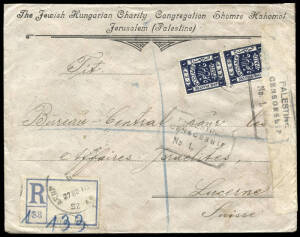 The Jewish Hungarian Charity Congregation Shomre Hahomot
Jerusalem (Palestine)
Tit.
Bureau Central pour les
affaires Israélites,
Lucerne
Suisse
PALESTINE
CENSORSHIP
No. 1
CENSORSHIP
No 1
R
133
133